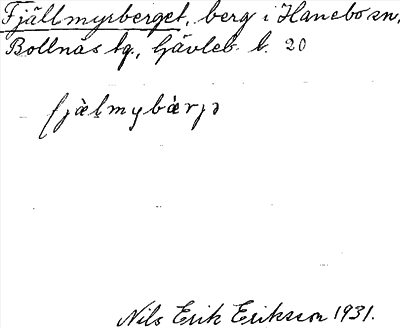 Fjällmyrberget, berg i Hanebo sn,
Bollnäs tg., Gävleb. l. 20
fjä̀lmybä̀rjə
Nils Erik Eriksson 1931.